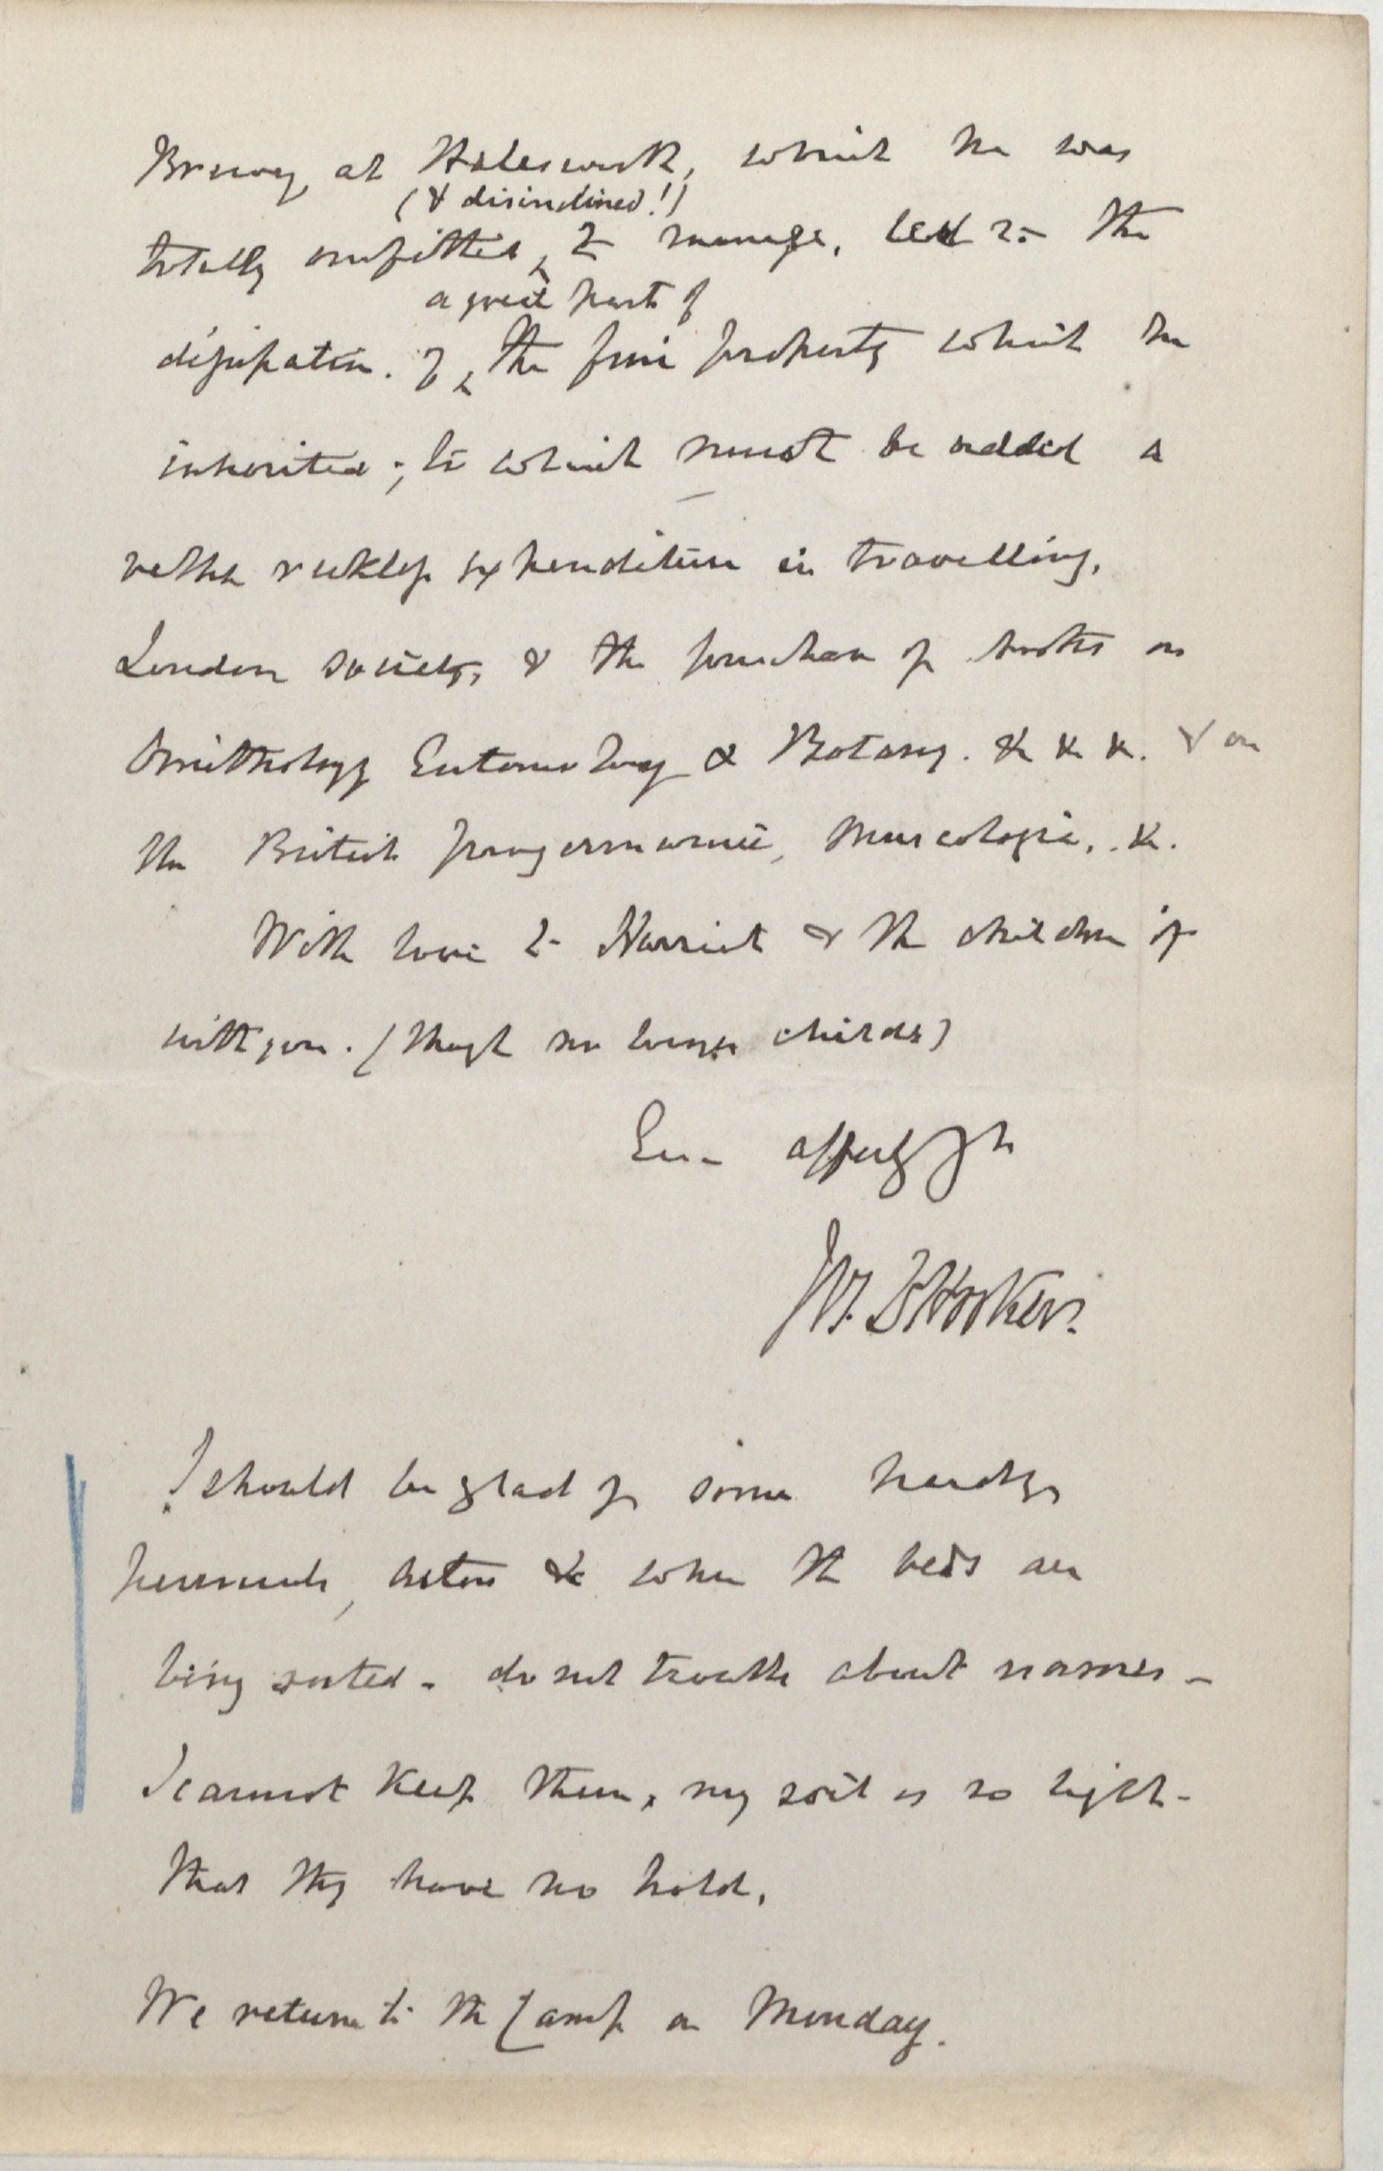 Brewery at Halesworth, which he was
(& disinclined!)
totally unfitted, to manage, led to the
a great part of
dissipation. of the fine property which he
inherited; to which must be added a
rather reckless expenditure in travelling,
London society, & the purchase of books on
Ornithology Entomology & Botany. &c &c &c. & on
the British Jungermanniae, Muscologia, &c.
With love to Harriet & the children if
with you. (though no longer childn)
Ever affecly yrs
Jos. D Hooker.
I should be glad of some hardy
perennials, Asters &c when the beds are
being sorted - do not trouble about names -
I cannot keep them, my soil is so light -
that they have no hold.
We return to the Camp on Monday.